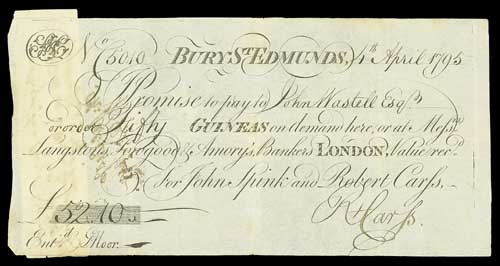 No. 5010 BURY ST. EDMUNDS, 4th April 1795
I Promise to pay to John Wastell Esqr.
or order Fifty GUINEAS on demand here, or at Messrs.
Langston's, Towgood & Amory's, Bankers LONDON, Value recd.
For John Spink and Robert Carss.
£52.10s R Carss.
Entd. Moor.